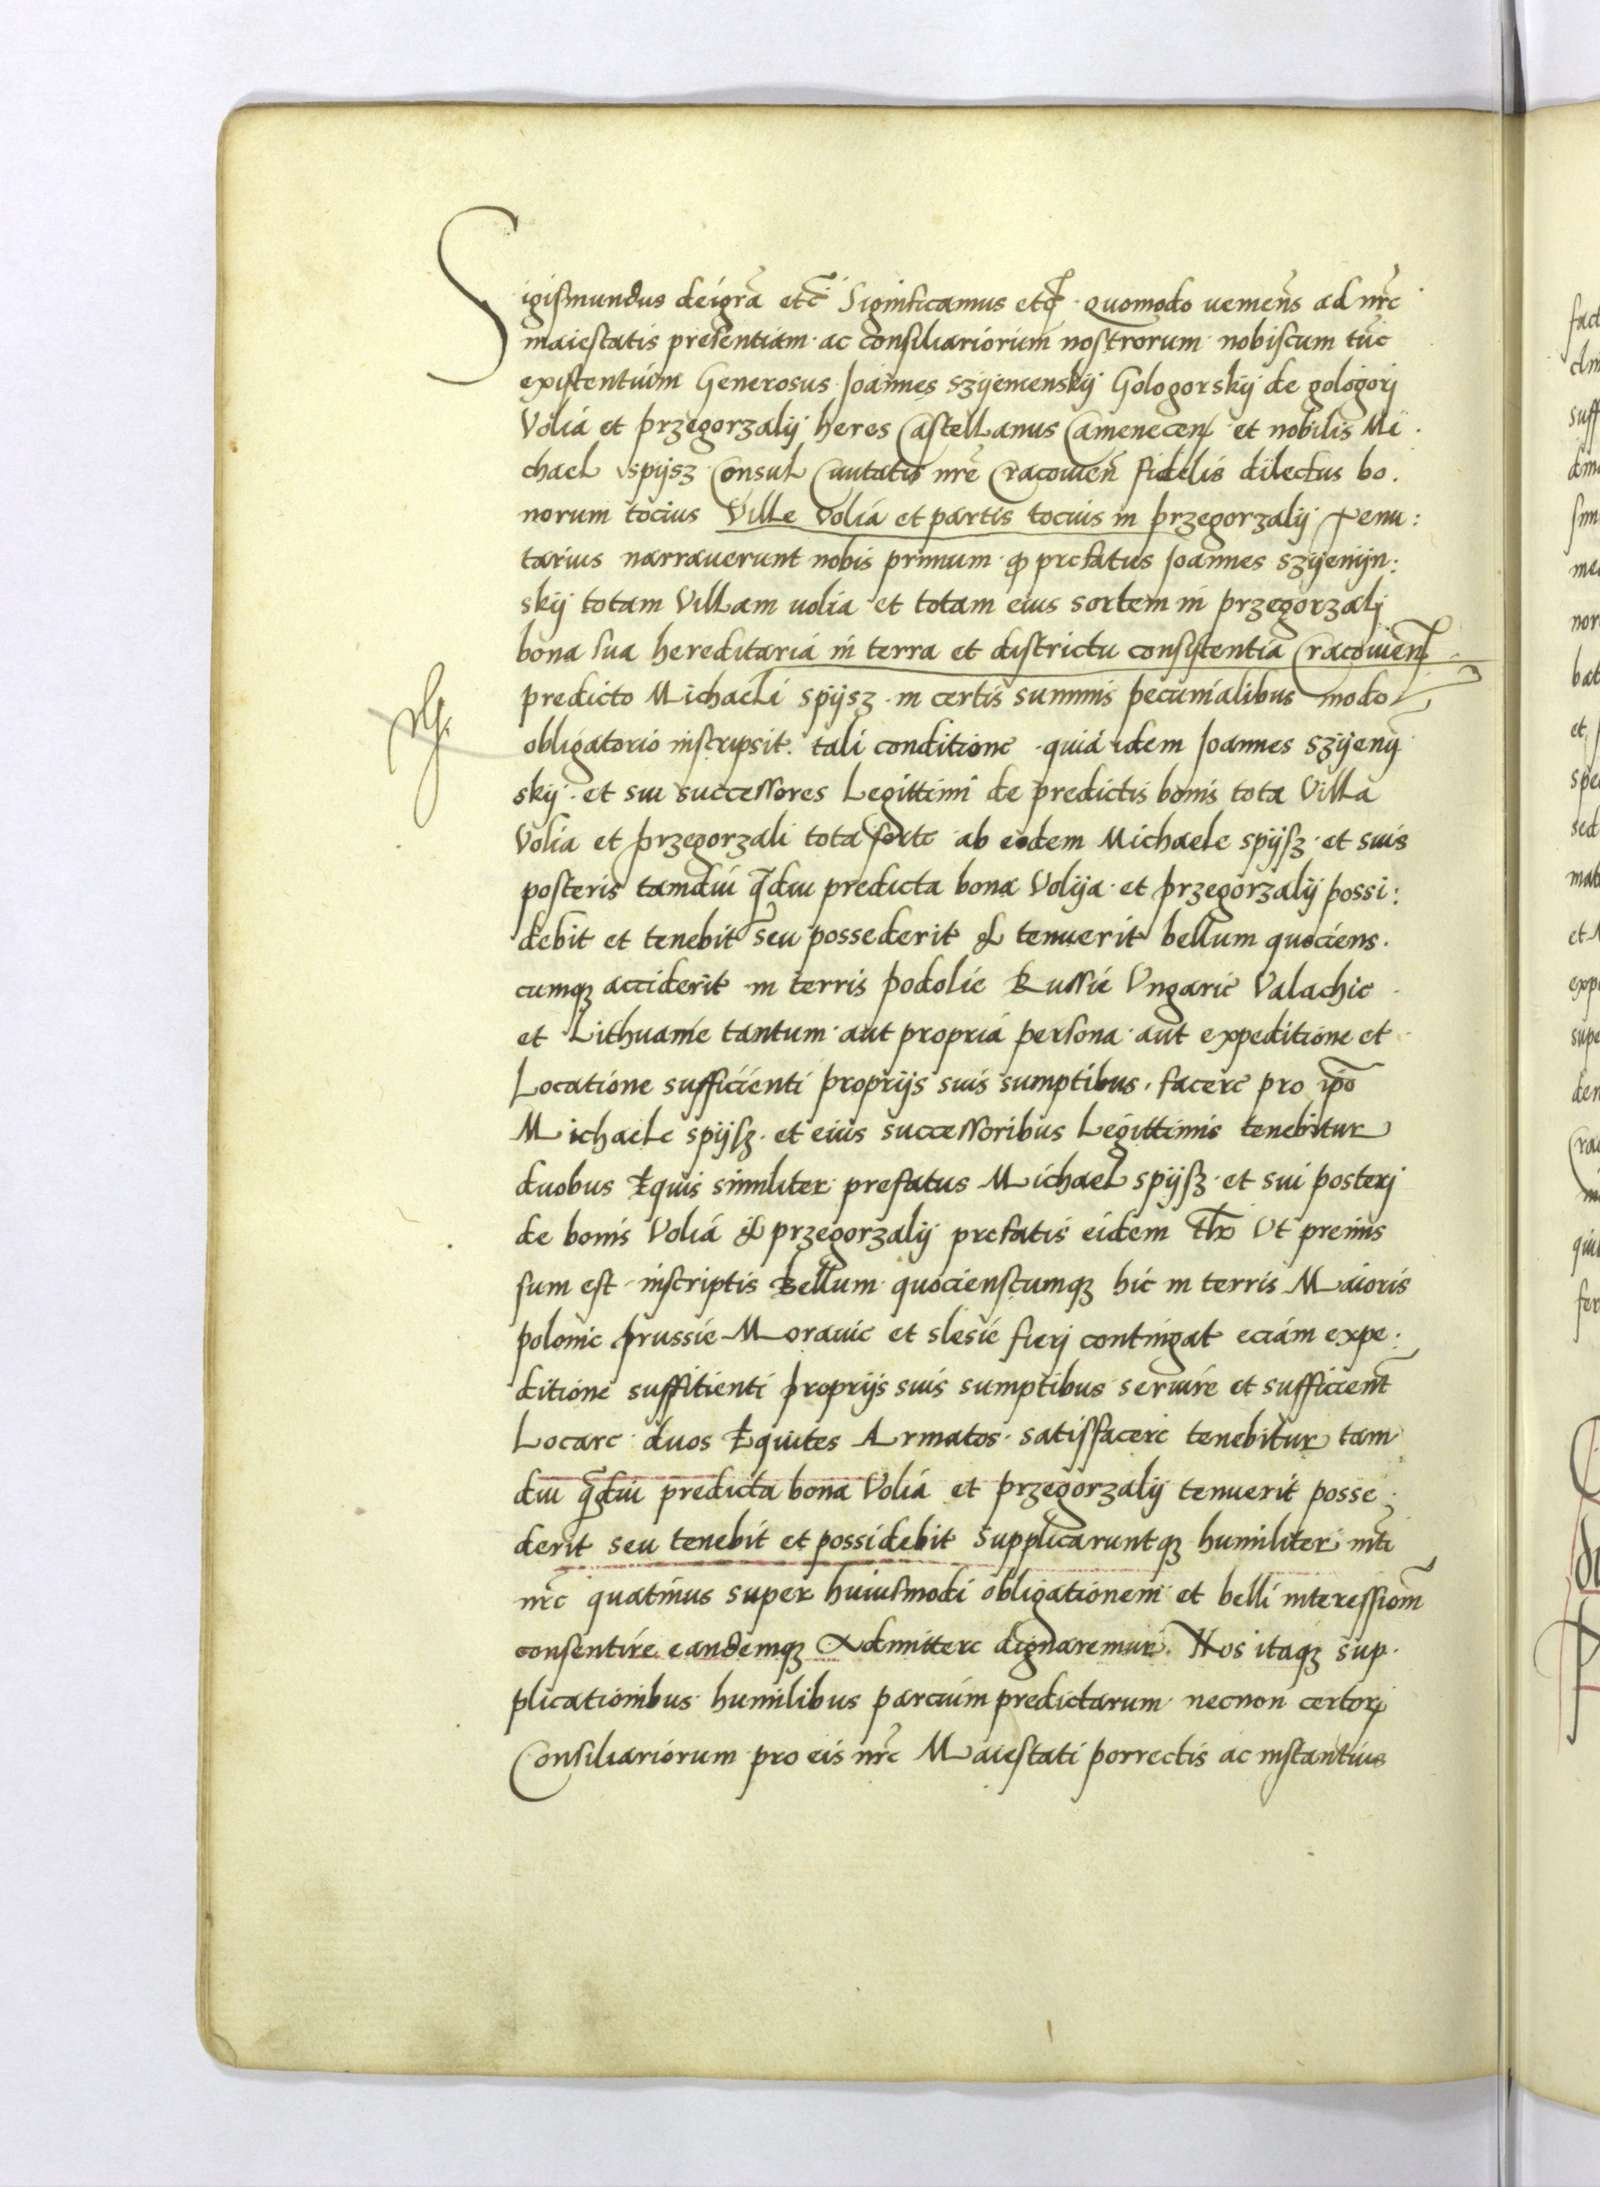 Sigismundus deigrã etc̃ Significamus etc̃ · quomodo veniens̃ ad nr̃e
maiestatis presentiam · ac consiliariorum nostrorum · nobiscum tũc
existentium Generosus · Joannes Szijemenskij Gologorskij de gologorj
Volia et przegorzalij heres Castellanus Camenecen̄ · et nobilis Mi ·
chael spijsz · Consul Civitatis nr̃e Cracovien̄ fidelis dilectus bo ·
norum tocius Ville Volia et partis tocius in przegorzalij tenu :
tarius narraverunt nobis primum · ꝙ prefatus Joannes Szijemijn :
skij totam Villam volia et totam eius sortem in przegorzalj
bona sua hereditaria in terra et districtu consistentia Cracovien̄
predicto Michaeli spijsz · in certis summis pecunialibus modo
obligatorio inscripsit. tali conditione · quia idem Joannes Szijenij
skij · et sui successores Legittimi de predictis bonis tota Villa
Volia et przegorzali tota sorte · ab eodem Michaele spijsz · et suis
posteris tamdiu q̃diu predicta bona Volija · et przegorzalij possi :
debit et tenebit seu possederit & tenuerit bellum quociens ·
cumqꝫ acciderit in terris podolie Russie Vngarie Valachie
et Lithuanie tantum · aut propria persona · aut expeditione et
Locatione sufficienti proprijs suis sumptibus · facere pro ip̃o
Michaele spijsz · et eius successoribus Legittimis tenebitur
duobus Equis similiter prefatus Michael spijsz · et sui posterj
de bonis Volia & przegorzalij prefatis eidem Vt premis
sum est · inscriptis Bellum · quocienscumqꝫ hic in terris Maioris
polonie prussie Moravie et slesie fierj contingat eciam expe :
ditione suffitienti proprijs suis sumptibus servire et sufficient̃
Locare · duos Equites Armatos · satisfacere tenebitur tam
diu q̃diu predicta bona Volia et przegorzalij tenuerit posse ·
derit seu tenebit et possidebit Supplicaruntqꝫ humiliter mt̃i
nr̃e quatinus super huiusmodi obligationem · et belli interessiom̃
consentire eandemqꝫ Admittere dignaremur. Nos itaqꝫ sup ·
plicationibus humilibus parcium predictarum · necnon certorꝝ
Consiliariorum · pro eis nr̃e Maiestati porrectis ac instantius